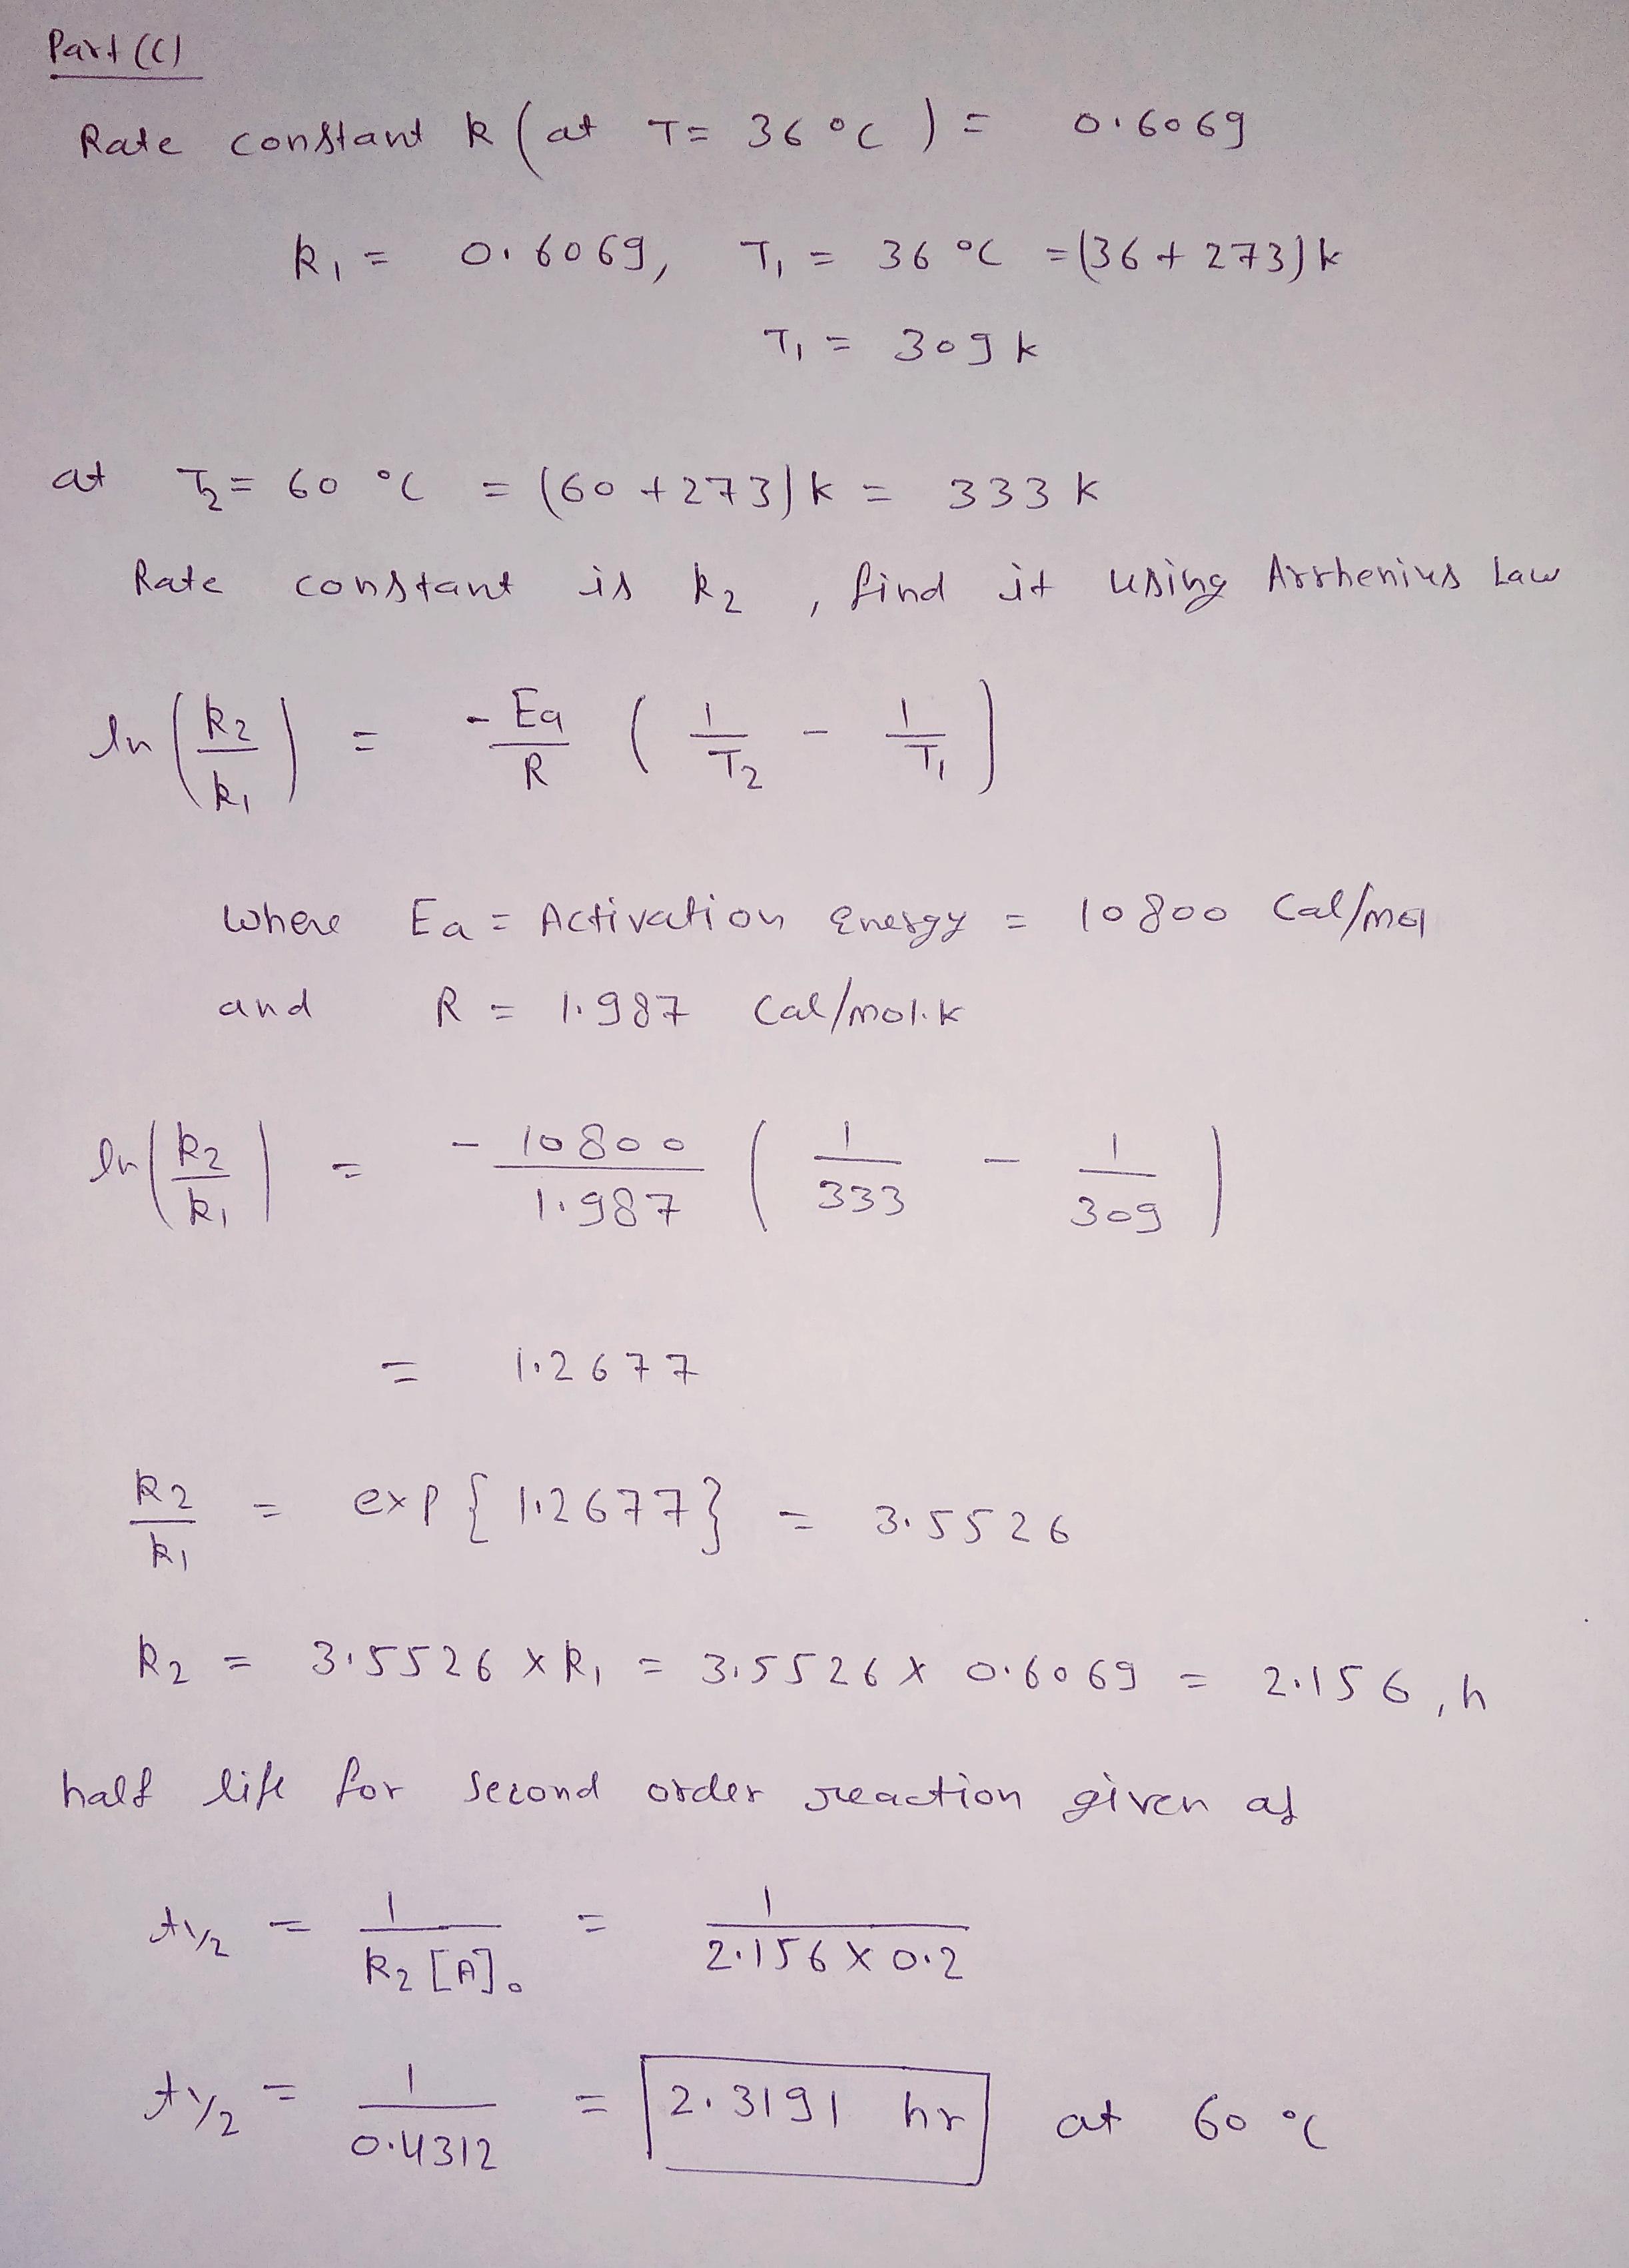 Part (C)
Rate constant k (at T = 36 °C) = 0.6069
k₁ = 0.6069, T₁ = 36 °C = (36 + 273) K
T₁ = 309 K
at T₂ = 60 °C = (60 + 273) K = 333 K
Rate constant is k₂, find it using Arrhenius Law
ln (k₂/k₁) = -Ea/R (1/T₂ - 1/T₁)
Where Ea = Activation Energy = 10800 Cal/mol
and R = 1.987 Cal/mol.K
ln (k₂/k₁) = -10800/1.987 (1/333 - 1/309)
= 1.2677
k₂/k₁ = exp {1.2677} = 3.5526
k₂ = 3.5526 × k₁ = 3.5526 × 0.6069 = 2.156, h
half life for second order reaction given as
t1/2 = 1/k₂[A]₀ = 1/2.156 × 0.2
t1/2 = 1/0.4312 = 2.3191 hr at 60 °C